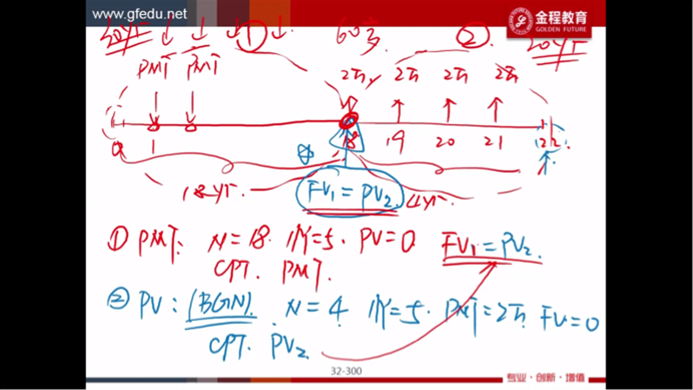 www.gfedu.net
金程教育
GOLDEN FUTURE
20yr ① 60多 ② 20yr
PMT PMT 2万 2万 2万 2万
0 1 18 19 20 21 22
18yr FV₁ = PV₂ 4yr
① PMT: N=18. I/Y=5. PV=0 FV₁=PV₂.
CPT. PMT.
② PV: (BGN). N=4 I/Y=5. PMT=2万. FV=0
CPT. PV₂
32-300
专业·创新·增值